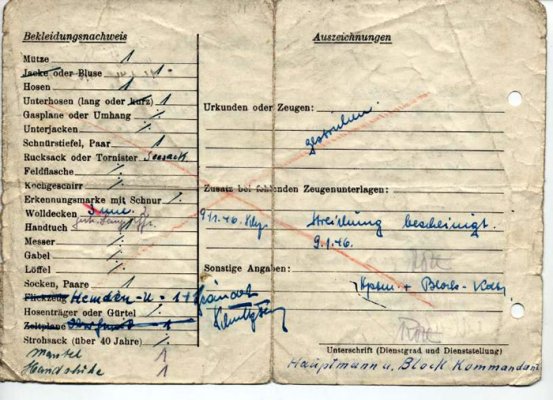 Bekleidungsnachweis
Mütze 1
Jacke oder Bluse
Hosen 1
Unterhosen (lang oder kurz) 1
Gasplane oder Umhang
Unterjacken
Schnürstiefel, Paar 1
Rucksack oder Tornister Seesack
Feldflasche
Kochgeschirr
Erkennungsmarke mit Schnur
Wolldecken
Handtuch 1
Messer
Gabel
Löffel
Socken, Paare 1
Flickzeug Hemden
Hosenträger oder Gürtel
Zeltplane 1
Strohsack (über 40 Jahre) 1
Mantel 1
Handschuhe 1
Auszeichnungen
Urkunden oder Zeugen:
gestrichen
Zusatz bei fehlenden Zeugenunterlagen:
9.1.46. Streichung bescheinigt.
9.1.46.
Sonstige Angaben:
Unterschrift (Dienstgrad und Dienststellung)
Hauptmann u. Block Kommandant